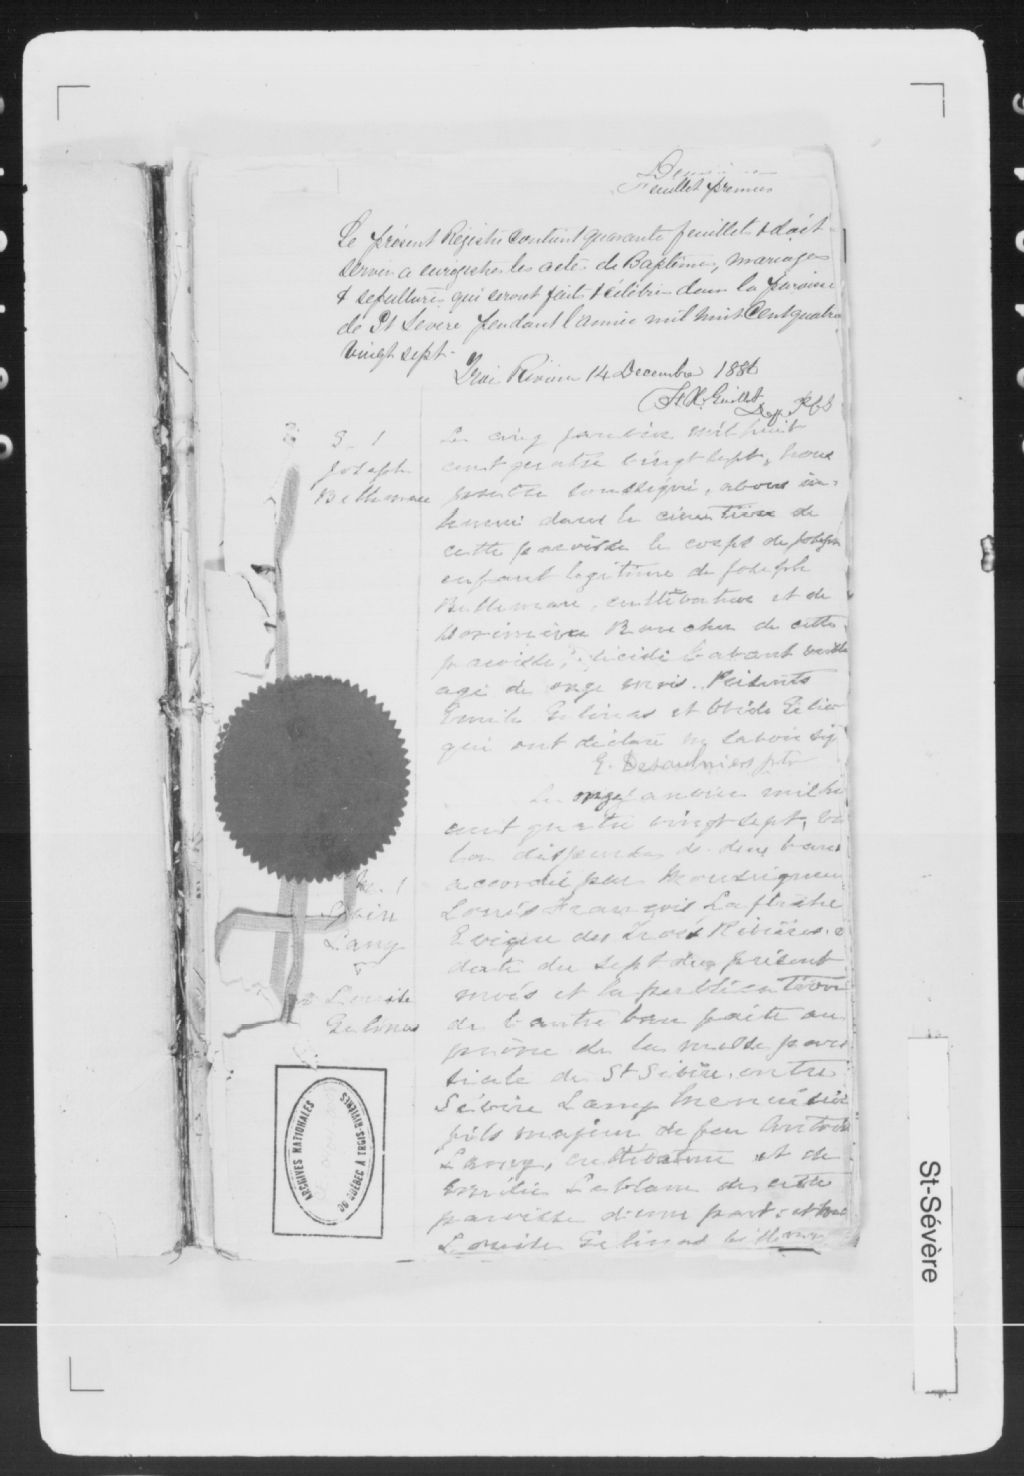 Feuillet premier
Le présent Registre contient quarante feuillets & doit
servir a enregistrer les actes de Baptêmes, mariages
& sepultures qui seront faits & célébrés dans la paroisse
de St Severe pendant l'année mil huit Cent quatre
vingt sept.
Trois Rivières 14 Decembre 1886
S. 1
Joseph
Bellemare
Le cinq janvier mil huit
cent quatre vingt sept, nous
prêtre soussigné, avons in-
humé dans le cimetière de
cette paroisse le corps de Joseph
enfant legitime de Joseph
Bellemare, cultivateur et de
de cette
paroisse, décédé l'avant veille
agé de onze mois. Présents
Gelinas et
qui ont déclaré ne savoir sig
E. Desaulniers ptr
M. 1
Lamy
&
Louise
Gelinas
Le onze janvier mil hu
cent quatre vingt sept, vu
la dispense de deux bans
accordée par Monseigneur
Louis François Laflèche
Evêque des Trois Rivières, e
date du sept du présent
mois et la publication
de l'autre ban faite au
prône de la messe paro
issiale de St Sévère, entre
Sévère Lamy Menuisier
fils majeur de feu Antoine
Lamy, cultivateur et de
Leblanc de cette
paroisse d'une part; et
Louise Gelinas fille
ARCHIVES NATIONALES
DU QUÉBEC À TROIS-RIVIÈRES
St-Sévère